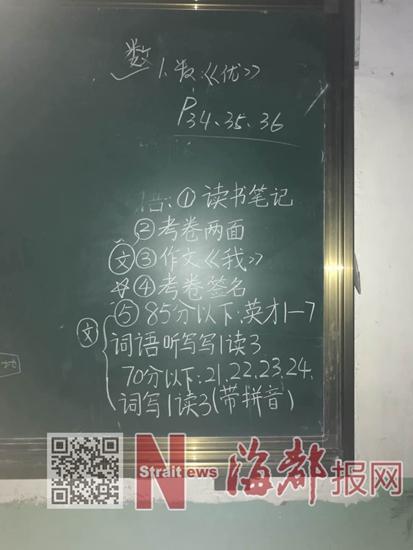 数 1、发《优》
P34、35、36
语:①读书笔记
②考卷两面
文③作文《我》
④考卷签名
文⑤85分以下:英才1—7
词语听写写1读3
70分以下:21、22、23、24、
词写1读3(带拼音)
N Straitnews 海都报网